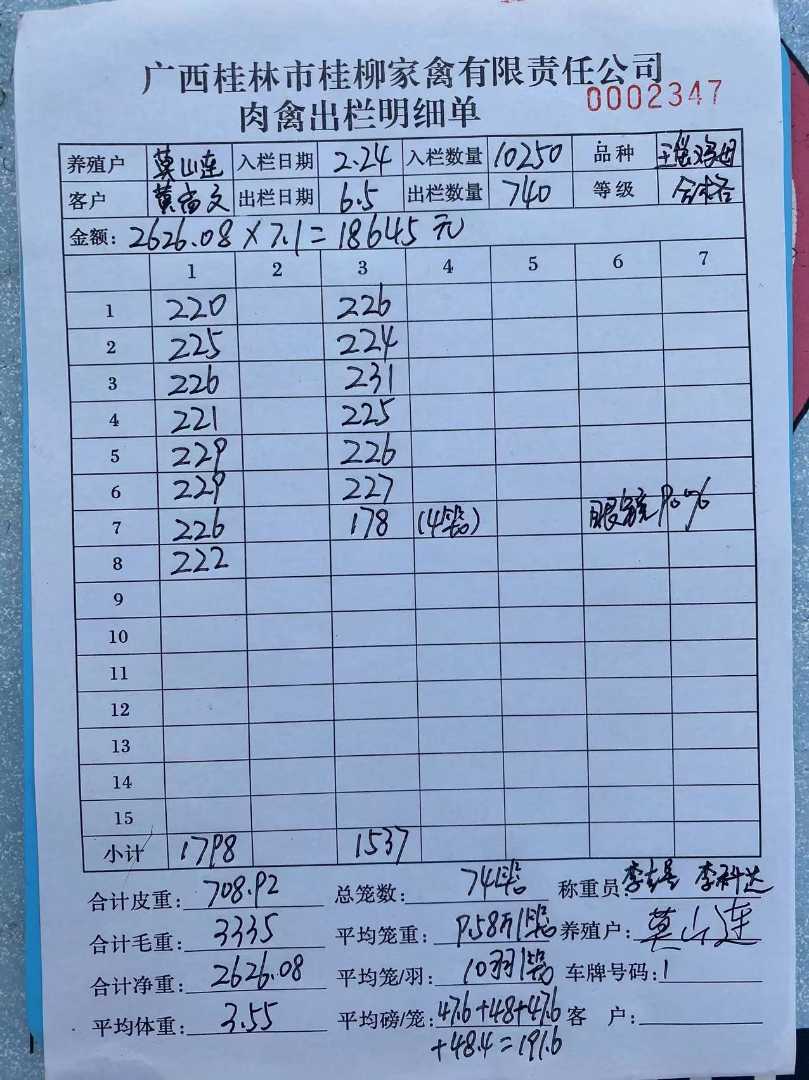 广西桂林市桂柳家禽有限责任公司
肉禽出栏明细单 0002347
养殖户 莫山连 入栏日期 2.24 入栏数量 10250 品种
客户 黄富文 出栏日期 6.5 出栏数量 740 等级 合格
金额: 2626.08×7.1=18645元
1 2 3 4 5 6 7
1 220 226
2 225 224
3 226 231
4 221 225
5 229 226
6 229 227
7 226 178 (4笼) 眼镜90%
8 222
9
10
11
12
13
14
15
小计 1798 1537
合计皮重: 708.92 总笼数: 74笼 称重员: 李科达
合计毛重: 3335 平均笼重: 9.58斤/笼 养殖户: 莫山连
合计净重: 2626.08 平均笼/羽: 10羽/笼 车牌号码:
平均体重: 3.55 平均磅/笼: 47.6+48+47.6 客 户:
+48.4=191.6